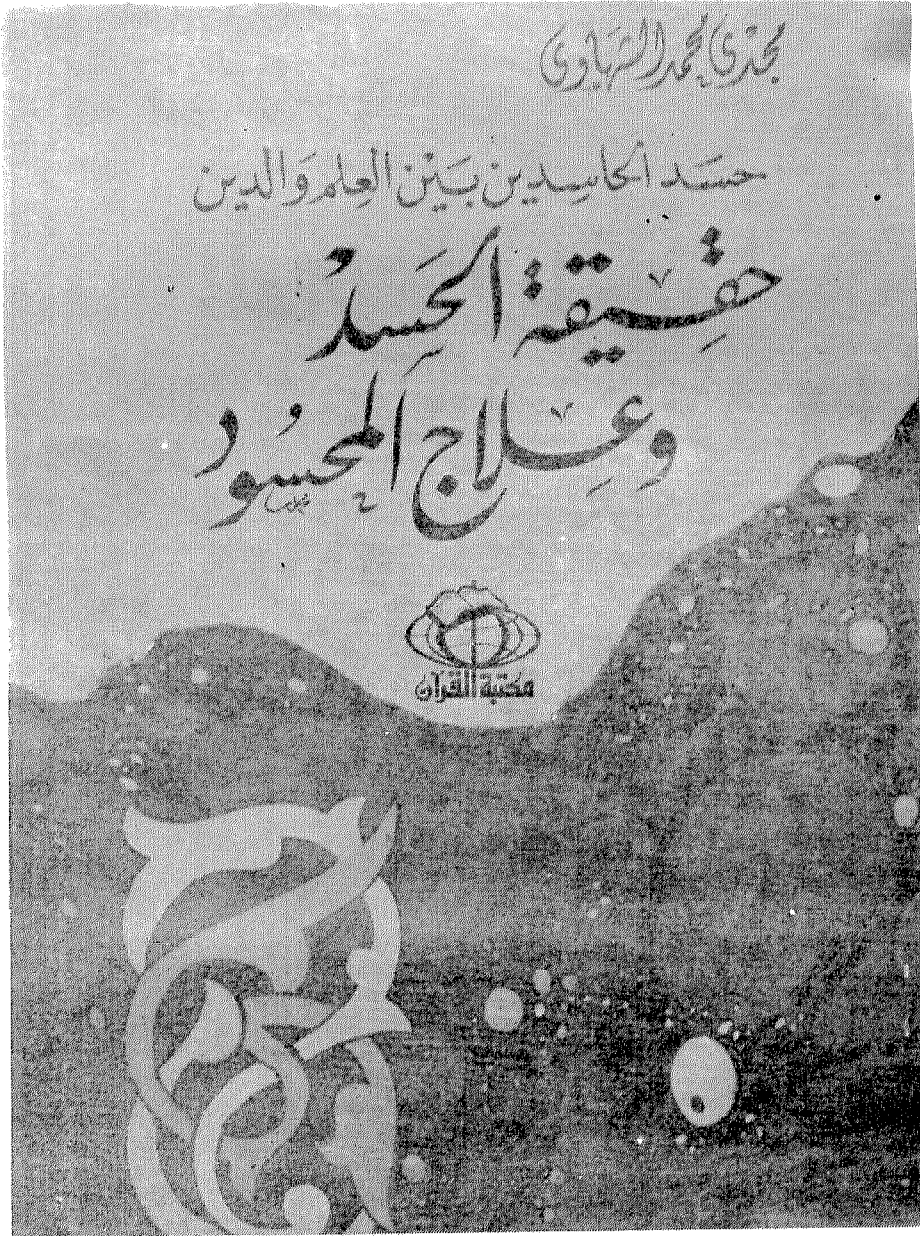 مجدى محمد الشهاوى
حسد الحاسدين بَين العِلم وَالدين
حقِيقة الحَسدْ
وَعِلاج المحسُود
مكتبة القرآن